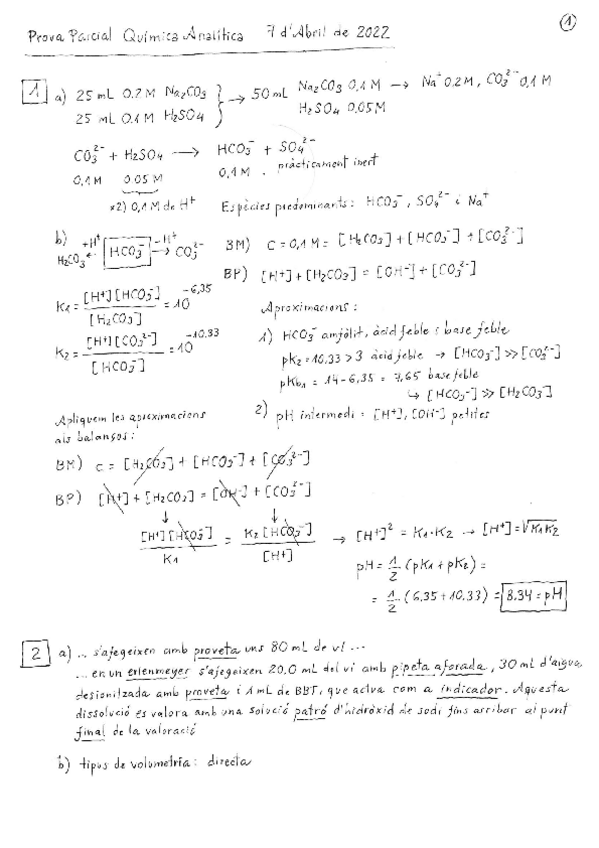 Prova Parcial Química Analítica 7 d'Abril de 2022
1
1 a) 25 mL 0.2 M Na2CO3
25 mL 0.1 M H2SO4
→ 50 mL Na2CO3 0,1 M → Na+ 0.2M, CO3 2- 0,1 M
H2SO4 0,05M
CO3 2- + H2SO4 → HCO3- + SO4 2-
0,1 M 0.05 M 0,1 M . pràcticament inert
x2) 0,1 M de H+ Espècies predominants: HCO3-, SO4 2- i Na+
b) H2CO3 ← +H+ HCO3- -H+ → CO3 2- BM) C = 0,1 M = [H2CO3] + [HCO3-] + [CO3 2-]
BP) [H+] + [H2CO3] = [OH-] + [CO3 2-]
K1 = [H+][HCO3-] / [H2CO3] = 10^-6,35
K2 = [H+][CO3 2-] / [HCO3-] = 10^-10.33
Aproximacions:
1) HCO3- amfòlit, àcid feble i base feble
pK2 = 10,33 > 3 àcid feble → [HCO3-] >> [CO3 2-]
pKb1 = 14 - 6,35 = 7,65 base feble
↳ [HCO3-] >> [H2CO3]
2) pH intermedi = [H+], [OH-] petites
Apliquem les aproximacions
als balanços:
BM) C = [H2CO3] + [HCO3-] + [CO3 2-]
BP) [H+] + [H2CO3] = [OH-] + [CO3 2-]
[H+][HCO3-] / K1 = K2 [HCO3-] / [H+] → [H+]² = K1·K2 → [H+] = √K1K2
pH = 1/2 (pK1 + pK2) =
= 1/2 (6,35 + 10,33) = 8.34 = pH
2 a) ... s'afegeixen amb proveta uns 80 mL de vi ...
... en un erlenmeyer s'afegeixen 20.0 mL del vi amb pipeta aforada, 30 mL d'aigua
desionitzada amb proveta i 1 mL de BBT, que actua com a indicador. Aquesta
dissolució es valora amb una solució patró d'hidròxid de sodi fins arribar al punt
final de la valoració
b) tipus de volumetria: directa